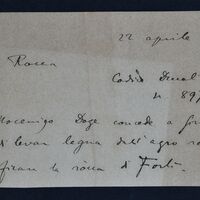 22 aprile
Rocca
Codice Ducal
n 89
Mocenigo Doge concede a
di levar legna dell'agro
la rocca di Forlì.